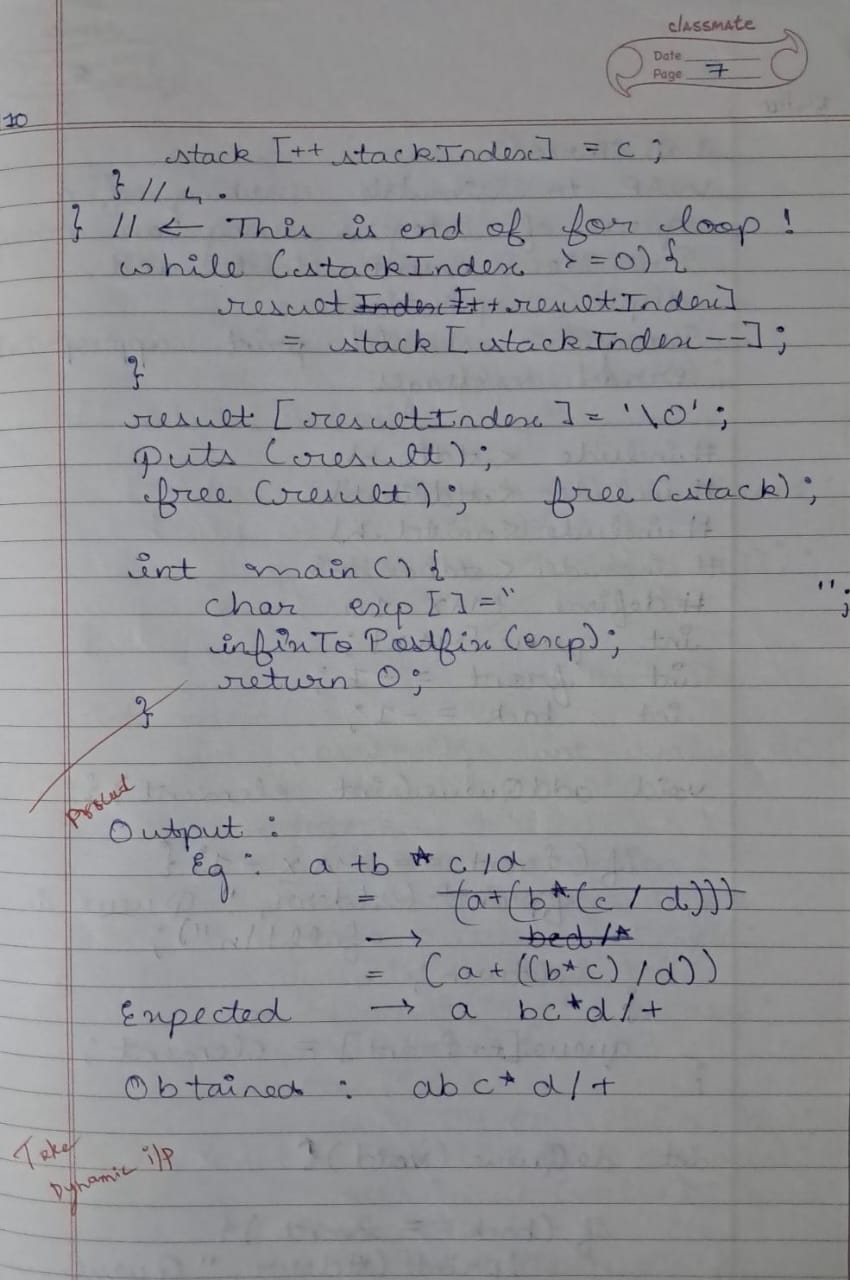 classmate
Date
Page 7
10
stack [++ stackIndex] = c ;
} // 4 .
} // ← This is end of for loop !
while (stackIndex >= 0) {
result Index [++ resultIndex]
= stack [ stackIndex --] ;
}
result [resultIndex] = '\0' ;
puts (result) ;
free (result) ; free (stack) ;
int main () {
char exp [] = " " ;
infixTo Postfix (exp) ;
return 0 ;
}
Output :
Eg : a + b * c / d
= (a+(b*(c / d)))
→ bcd/*
= (a + ((b*c) /d))
Expected → a bc*d/+
Obtained : abc* d/+
Take
Dynamic i/p